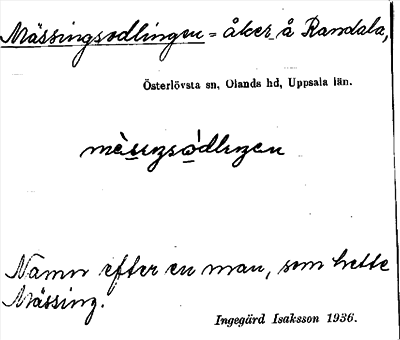 Mässingsodlingen = åker å Randala,
Österlövsta sn, Olands hd, Uppsala län.
mèsıŋsódlıŋən
Namn efter en man, som hette
Mässing.
Ingegärd Isaksson 1936.